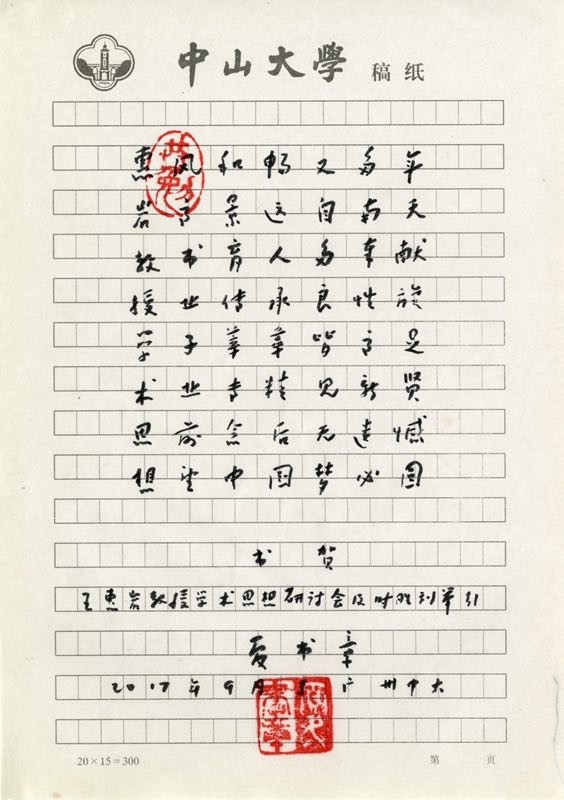 中山大學 稿纸
惠风和畅又多年
岩高景远自南天
教书育人多奉献
授业传承良性旋
学子莘莘皆高足
术业专精见新贤
思前念后无遗憾
想望中国梦必圆
书贺
王惠岩教授学术思想研讨会及时胜利举行
夏书章
2017年9月于广州中大
20×15=300 第 页